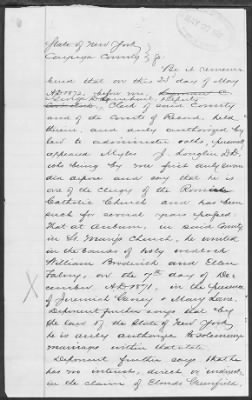 State of New York }
Cayuga County } ss.
Be it remem
bered that on this 23d day of May
AD 1872, before me,
George D. Deputy
Clerk of said County
and of the Court of Record held
therein, and duly authorized by
law to administer oaths, personally
appeared Myles J.
who being by me first duly sworn
did depose and say that he is
one of the Clergy of the Roman
Catholic Church and has been
such for several years passed.
That at Auburn, in said County
in St. Marys Church, he united
in the bonds of holy wedlock
William Broderick and Ellen
on the 7th day of De
cember AD 1871, in the presence
of Jeremiah Casey & Mary
Deponent further says that by
the laws of the State of New York
he is duly authorized to solemnize
marriages within that state.
Deponent further says that he
has no interest, direct or indirect
in the claim of